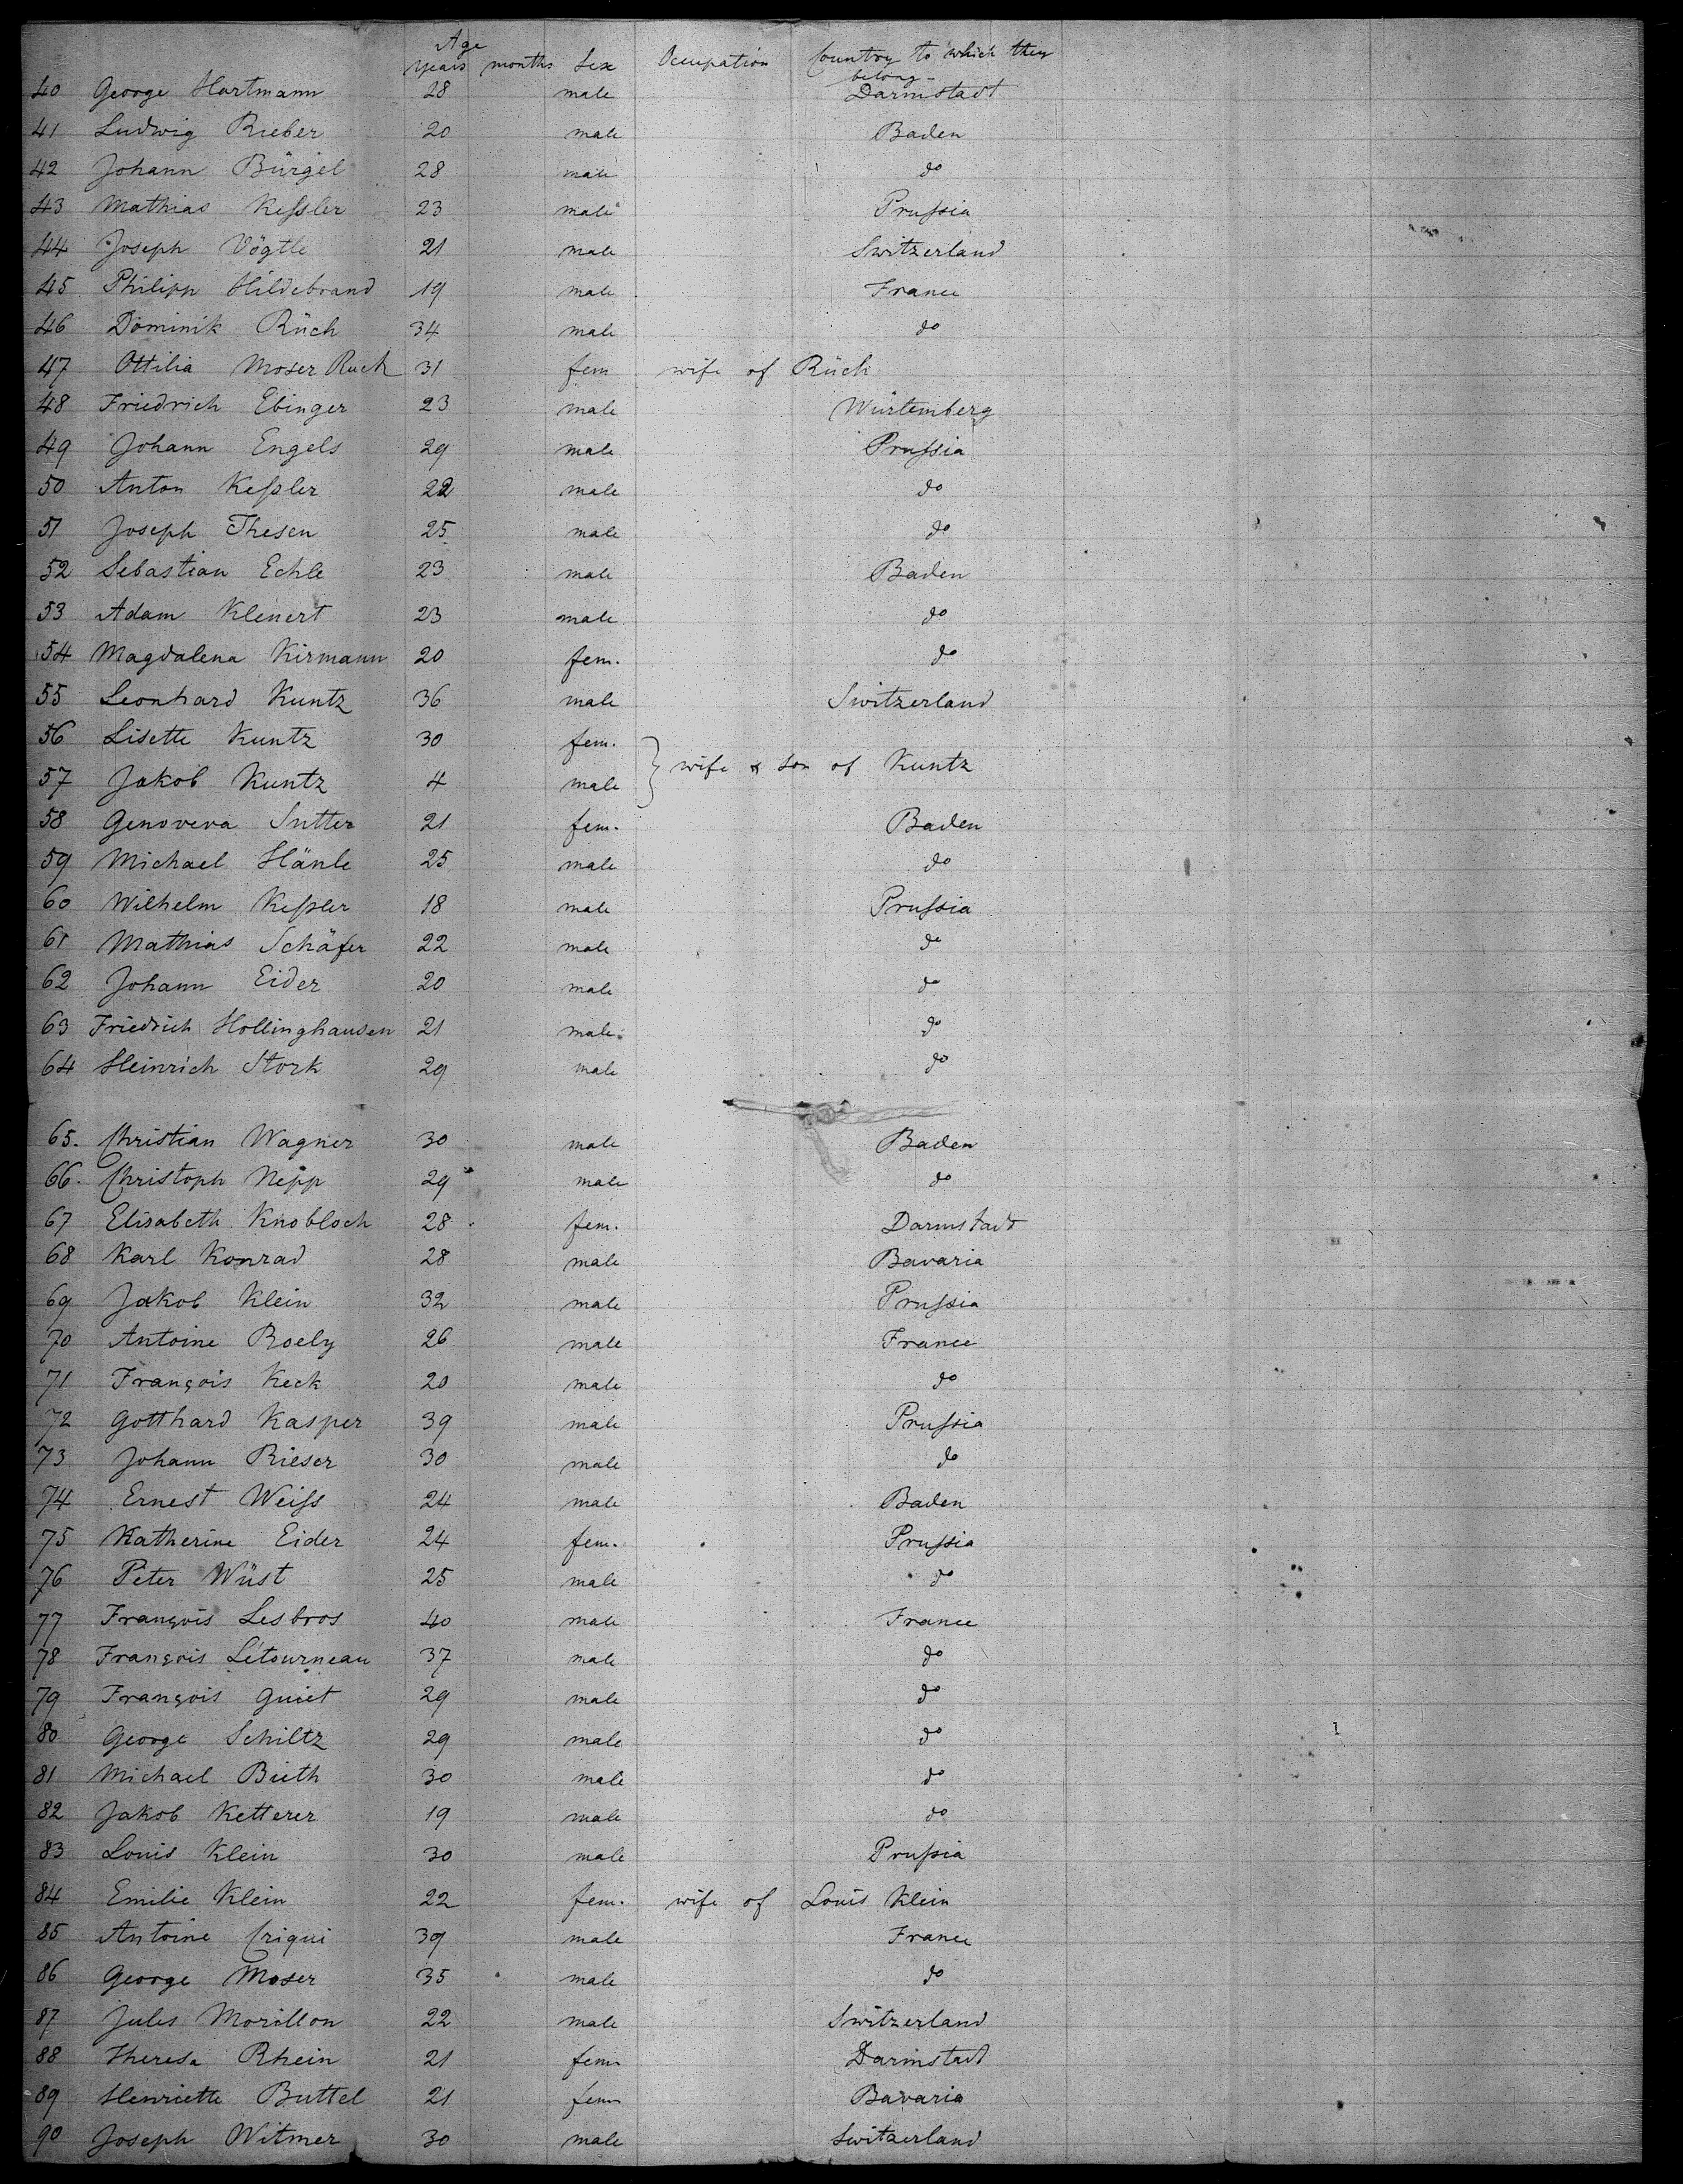 Age
years months Sex Occupation Country to which they
belong-
40 George Hartmann 28 male Darmstadt
41 Ludwig Rieber 20 male Baden
42 Johann Bürgel 28 male do
43 Mathias Keſsler 23 male Pruſsia
44 Joseph Vögtle 21 male Switzerland
45 Philipp Hildebrand 19 male France
46 Dominik Rüch 34 male do
47 Ottilia Moser Ruch 31 fem wife of Rüch
48 Friedrich Ebinger 23 male Würtemberg
49 Johann Engels 29 male Pruſsia
50 Anton Keſsler 22 male do
51 Joseph Thesen 25 male do
52 Sebastian Echle 23 male Baden
53 Adam Klenert 23 male do
54 Magdalena Kirmann 20 fem. do
55 Leonhard Kuntz 36 male Switzerland
56 Lisette Kuntz 30 fem.
wife & son of Kuntz
57 Jakob Kuntz 4 male
58 Genoveva Sutter 21 fem. Baden
59 Michael Hänle 25 male do
60 Wilhelm Keſsler 18 male Pruſsia
61 Mathias Schäfer 22 male do
62 Johann Eider 20 male do
63 Friedrich Hollinghausen 21 male do
64 Heinrich Stork 29 male do
65. Christian Wagner 30 male Baden
66. Christoph Nepp 29 male do
67 Elisabeth Knobloch 28 fem. Darmstadt
68 Karl Konrad 28 male Bavaria
69 Jakob Klein 32 male Pruſsia
70 Antoine Roely 26 male France
71 François Keck 20 male do
72 Gotthard Kasper 39 male Pruſsia
73 Johann Rieser 30 male do
74 Ernest Weiſs 24 male Baden
75 Katherine Eider 24 fem. Pruſsia
76 Peter Wüst 25 male do
77 François Lesbros 40 male France
78 François Létourneau 37 male do
79 François Guiet 29 male do
80 George Schiltz 29 male do
81 Michael Bieth 30 male do
82 Jakob Ketterer 19 male do
83 Louis Klein 30 male Pruſsia
84 Emilie Klein 22 fem. wife of Louis Klein
85 Antoine Criqui 39 male France
86 George Moser 35 male do
87 Jules Morillon 22 male Switzerland
88 Theresa Rhein 21 fem Darmstadt
89 Henriette Buttel 21 fem Bavaria
90 Joseph Witmer 30 male Switzerland